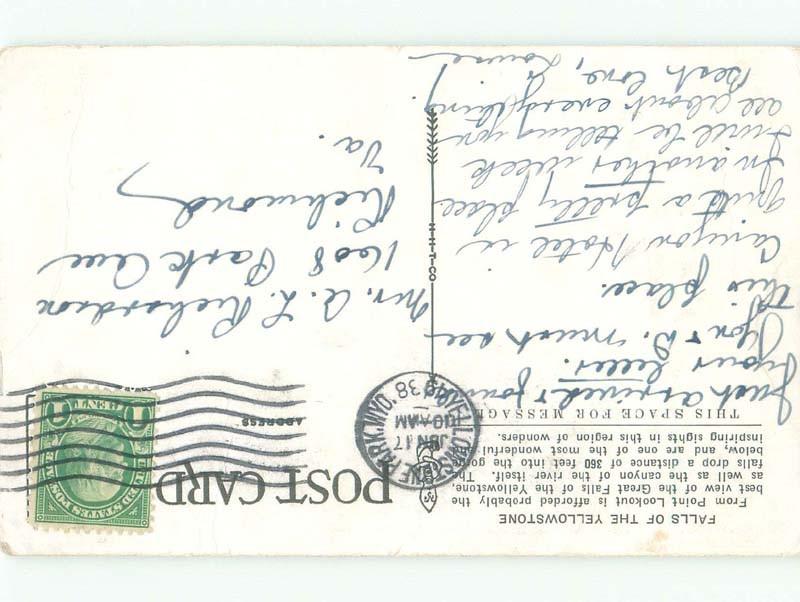 FALLS OF THE YELLOWSTONE
From Point Lookout is afforded probably the
best view of the Great Falls of the Yellowstone,
as well as the canyon of the river itself. The
falls drop a distance of 360 feet into the gorge
below, and are one of the most wonderful and
inspiring sights in this region of wonders.
THIS SPACE FOR MESSAGE
Just arrived & found
your letter.
You & D. must see
this place.
Canyon Hotel is
quite a pretty place
In another week
I will be telling you
all about everything
Best love, Louise
H-H-T-CO
POST CARD
ADDRESS
YELLOWSTONE PARK, WYO.
JUN 17
10 AM
38
UNITED STATES POSTAGE
1 CENT 1
Mr. A. L. Richardson
1608 Park Ave
Richmond,
Va.